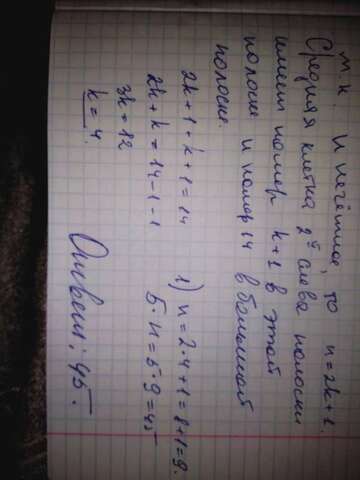 т.к. n нечётное, то n = 2k+1.
Средняя клетка 2ой слева полоски
имеет номер k+1 в этой
полоске и номер 14 в большой
полоске.
2k+1+k+1=14
2k+k=14-1-1
3k=12
k=4.
1) n=2·4+1=8+1=9.
5·n=5·9=45
Ответ: 45.